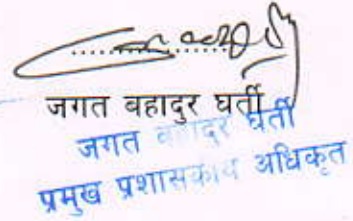 जगत बहादुर घर्ती
जगत बहादुर घर्ती
प्रमुख प्रशासकीय अधिकृत